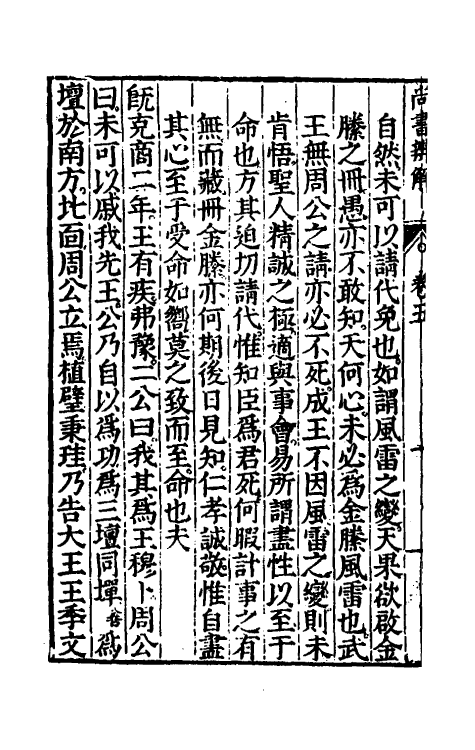 尚書辨解 卷五
自然未可以請代免也如謂風雷之變天果欲啟金
縢之冊愚亦不敢知天何心未必為金縢風雷也武
王無周公之請亦必不死成王不因風雷之變則未
肯悟聖人精誠之極適與事會易所謂盡性以至于
命也方其迫切請代惟知臣為君死何暇計事之有
無而藏冊金縢亦何期後日見知仁孝誠敬惟自盡
其心至于受命如嚮莫之致而至命也夫
既克商二年王有疾弗豫二公曰我其為王穆卜周公
曰未可以戚我先王公乃自以為功為三壇同墠為
壇於南方北面周公立焉植璧秉珪乃告大王王季文